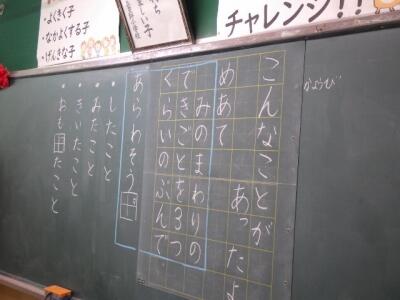 チャレンジ!!
・よくきく子
・なかよくする子
・げんきな子
かようび
こんなことが
あったよ
めあて
みのまわりの
できごとを3つ
くらいのぶんで
あらわそう
・したこと
・みたこと
・きいたこと
・おも田たこと